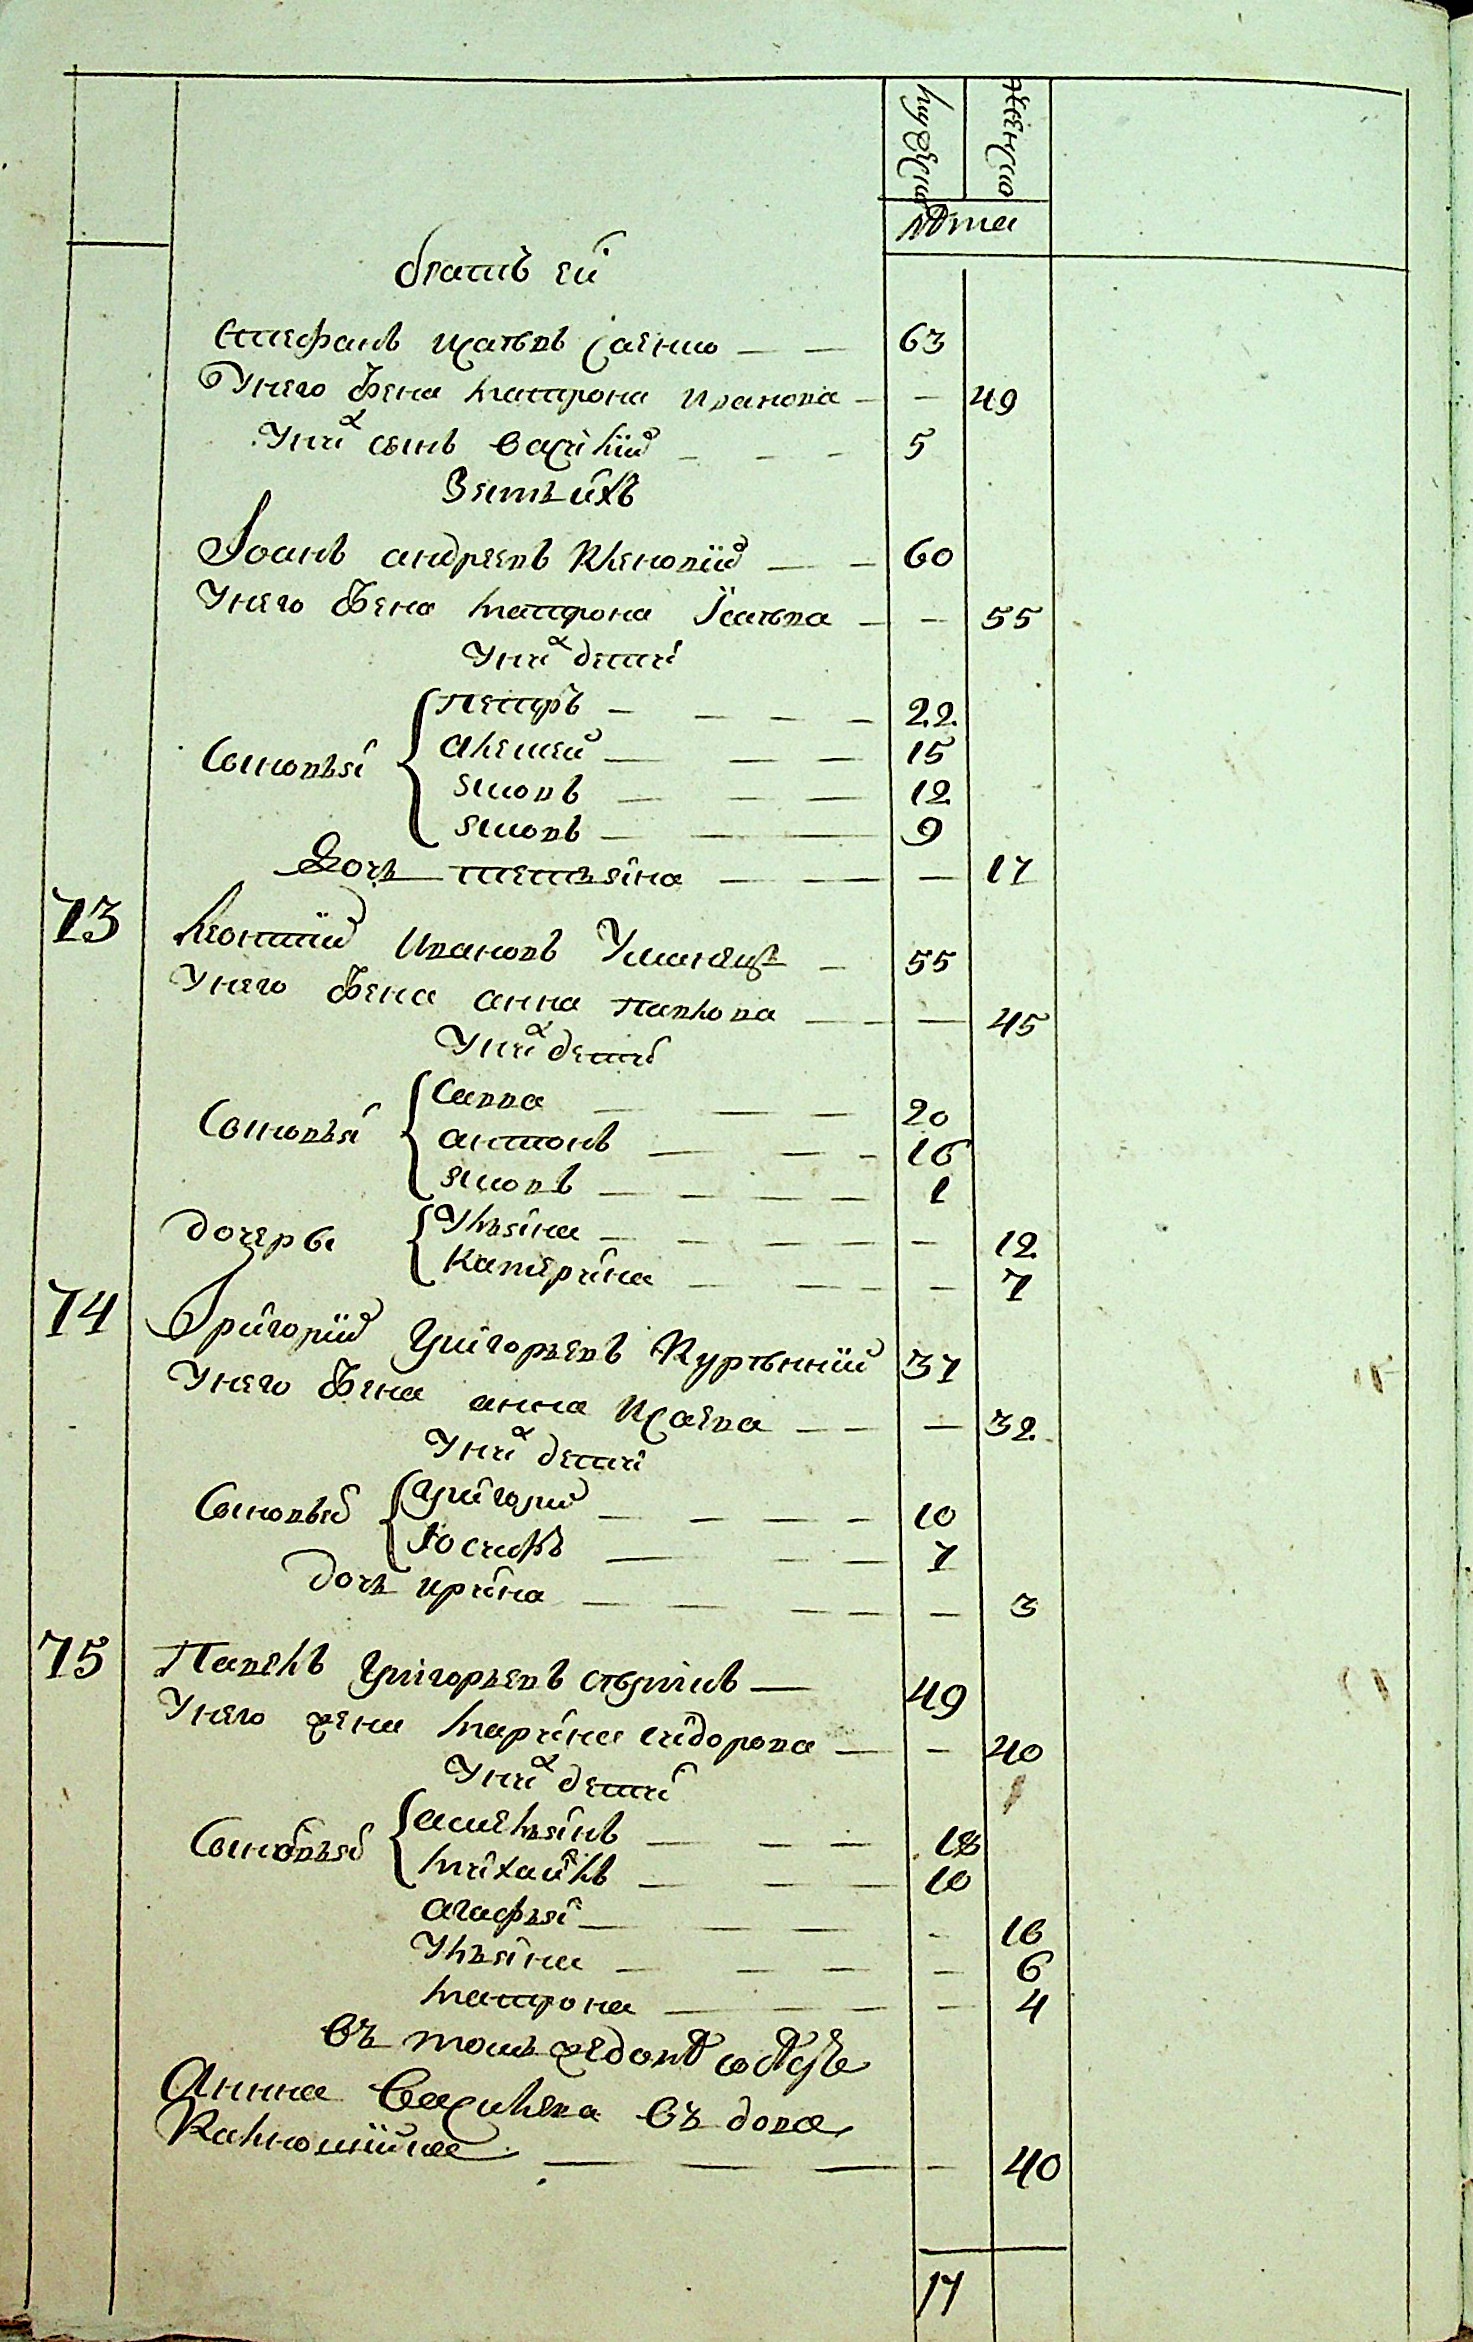 мужеска
женска
лѣта
братъ ей
Стефанъ Исаевъ Саенко — — 63
У него жена Матрона Иванова — — 49
У них сынъ Василій — — — 5
Зять ихъ
Іоанъ Андреевъ Кленовій — — 60
У него жена Матрона Исаева — — 55
У них дети
Сыновья
Петръ — — — — 22
Алексей — — — 15
Яковъ — — — 12
Яковъ — — 9
Дочь Тетьяна — — — — 17
73 Леонтій Ивановъ Уманецъ — 55
У него жена Анна Павлова — — — 45
У них дети
Сыновья
Савва — — — 20
Антонъ — — — 16
Яковъ — — — — 1
дочеры
Ульяна — — — — — 12
Катерина — — — — 7
74 Григорій Григорьевъ 37
У него жена Анна Исаева — — — 32
У них дети
Сыновья
Григорий — — — — 10
Іосифъ — — — 7
дочь Ирина — — — — — 3
75 Павелъ Григорьевъ — 49
У него жена Марина Сидорова — — 40
У них дети
Сыновья
Амельянъ — — — 18
Михаилъ — — — 10
Агафья — — — - 16
Ульяна — — — — 6
Матрона — — — — 4
Въ томъ же дворѣ
Анна Василева въдова
— — — — 40
17